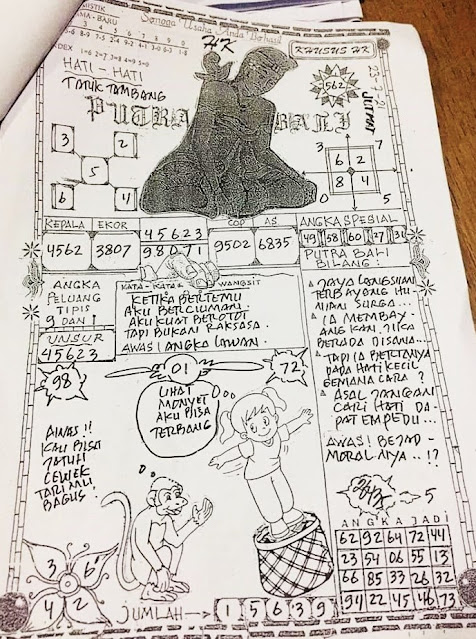 Semoga Usaha Anda Berhasil
HK
KHUSUS HK
1=6 2=7 3=8 4=9 5=0
HATI - HATI
TATUK TAMBANG
PUTRA BALI
562
JUTMAT
3 2
5
6 4
3 7
6 2
8 4
0 5
KEPALA EKOR 45623 COP AS ANGKA SPESIAL
4562 3807 98071 9502 6835 49 58 60 27 31
PUTRA BALI
BILANG:
ANGKA
PELUANG
TIPIS
9 DAN 1
UNSUR
45623
KATA - KATA2 WANGSIT
KETIKA BERTEMU
AKU BERCIUMAN
AKU KUAT BEROTOT
TAPI BUKAN RAKSASA.
AWAS! ANGKA LAWAN.
TERBAYANG HU-
NIAN SURGA...
IA MEMBAY-
ANGKAN JIKA
BERADA DISANA...
TAPI IA BERTANYA
PADA HATI KECIL
GEMANA CARA ?
ASAL JANGAN
CARI HATI DA-
PAT EMPEDU...
AWAS! BEJAD-
MORALNYA..!?
98
01
72
LIHAT
MONYET
AKU BISA
TERBANG
AWAS!!
KAU BISA
JATUH
CEWEK
TARI MU
BAGUS!
3 6
4 2
5
ANGKA JADI
62 92 64 72 44
23 54 06 55 13
66 85 33 26 32
94 22 45 46 73
JUMLAH → 1 5 6 3 9